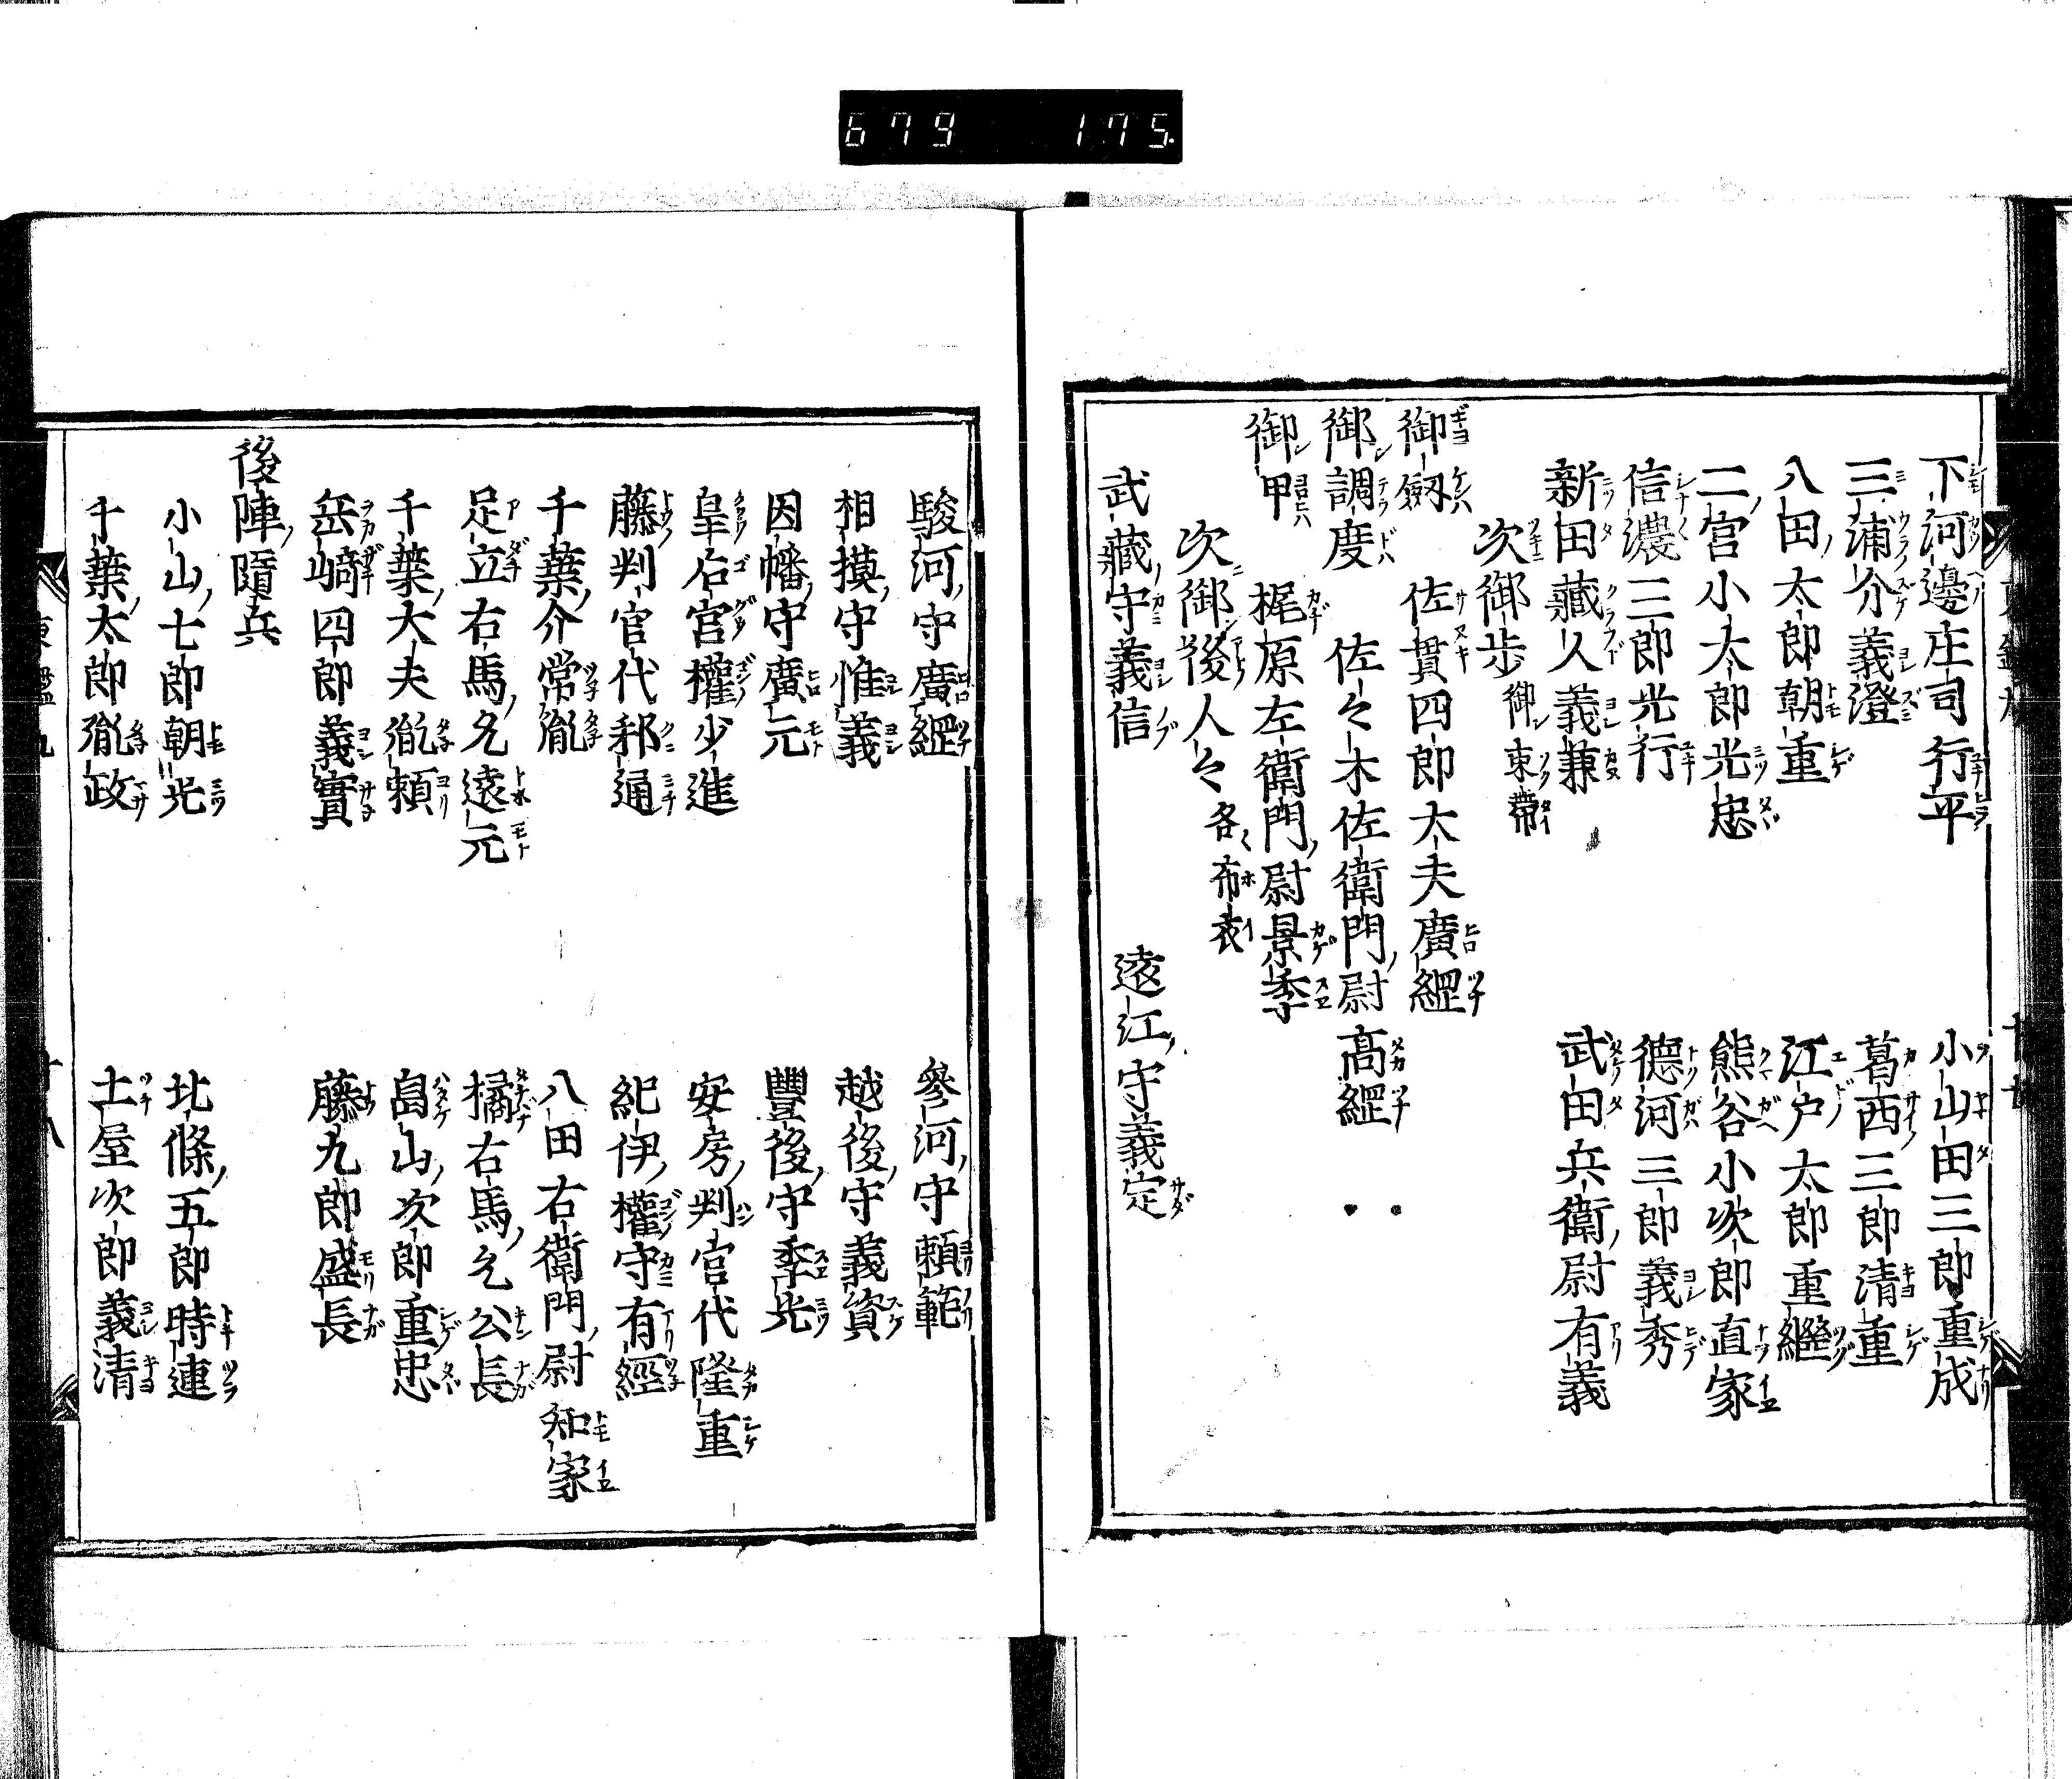 679 175
下河邊庄司行平 小山田三郎重成
三浦介義澄 葛西三郎清重
八田太郎朝重 江戸太郎重繼
二宮小太郎光忠 熊谷小次郎直家
信濃三郎光行 德河三郎義秀
新田藏人義兼 武田兵衛尉有義
次御歩御束帶
御劔 佐貫四郎大夫廣綱
御調度 佐々木佐衛門尉高綱
御甲 梶原左衛門尉景季
次御後人々各布衣
武藏守義信 遠江守義定
駿河守廣綱 參河守頼範
相摸守惟義 越後守義資
因幡守廣元 豐後守季光
皇后宮權少進 安房判官代隆重
藤判官代邦通 紀伊權守有經
千葉介常胤 八田右衛門尉知家
足立右馬允遠元 橘右馬允公長
千葉大夫胤頼 畠山次郎重忠
岳﨑四郎義實 藤九郎盛長
後陣隨兵
小山七郎朝光 北條五郎時連
千葉太郎胤政 土屋次郎義清